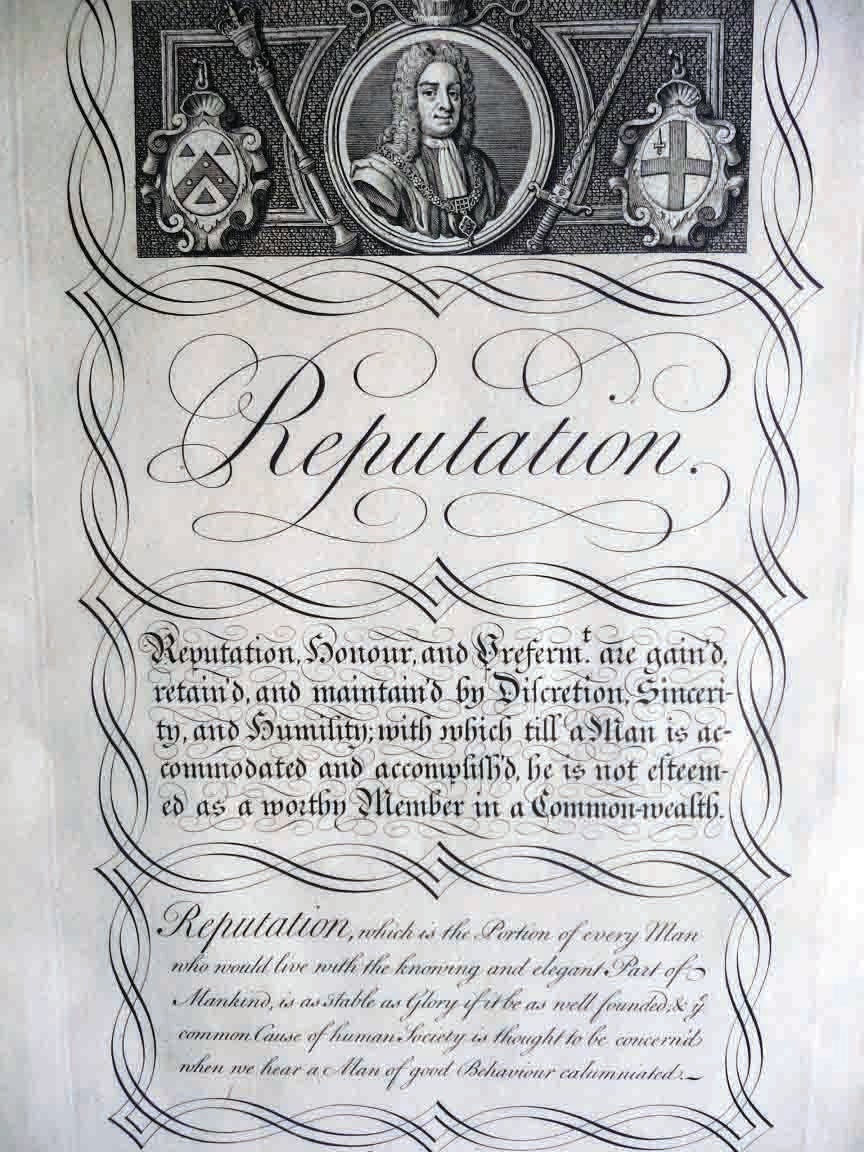 Reputation.
Reputation, Honour, and Preferm.t are gain'd,
retain'd, and maintain'd by Discretion, Sinceri-
ty, and Humility; with which till a Man is ac-
commodated and accomplish'd, he is not esteem-
ed as a worthy Member in a Common-wealth.
Reputation, which is the Portion of every Man
who would live with the knowing and elegant Part of
Mankind, is as stable as Glory if it be as well founded; & ye
common Cause of human Society is thought to be concern'd
when we hear a Man of good Behaviour calumniated.